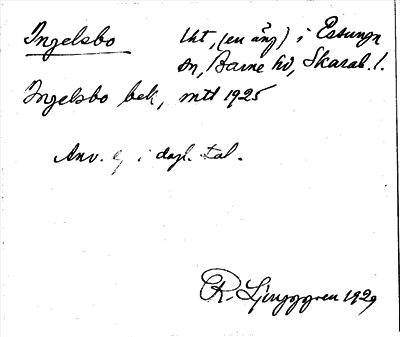 Ingelsbo Ut, (en äng) i Essunga
sn, Barne hd, Skarab. l.
Ingelsbo bek, mtl 1925
Anv. ej i dagl. tal.
R. Ljunggren 1929